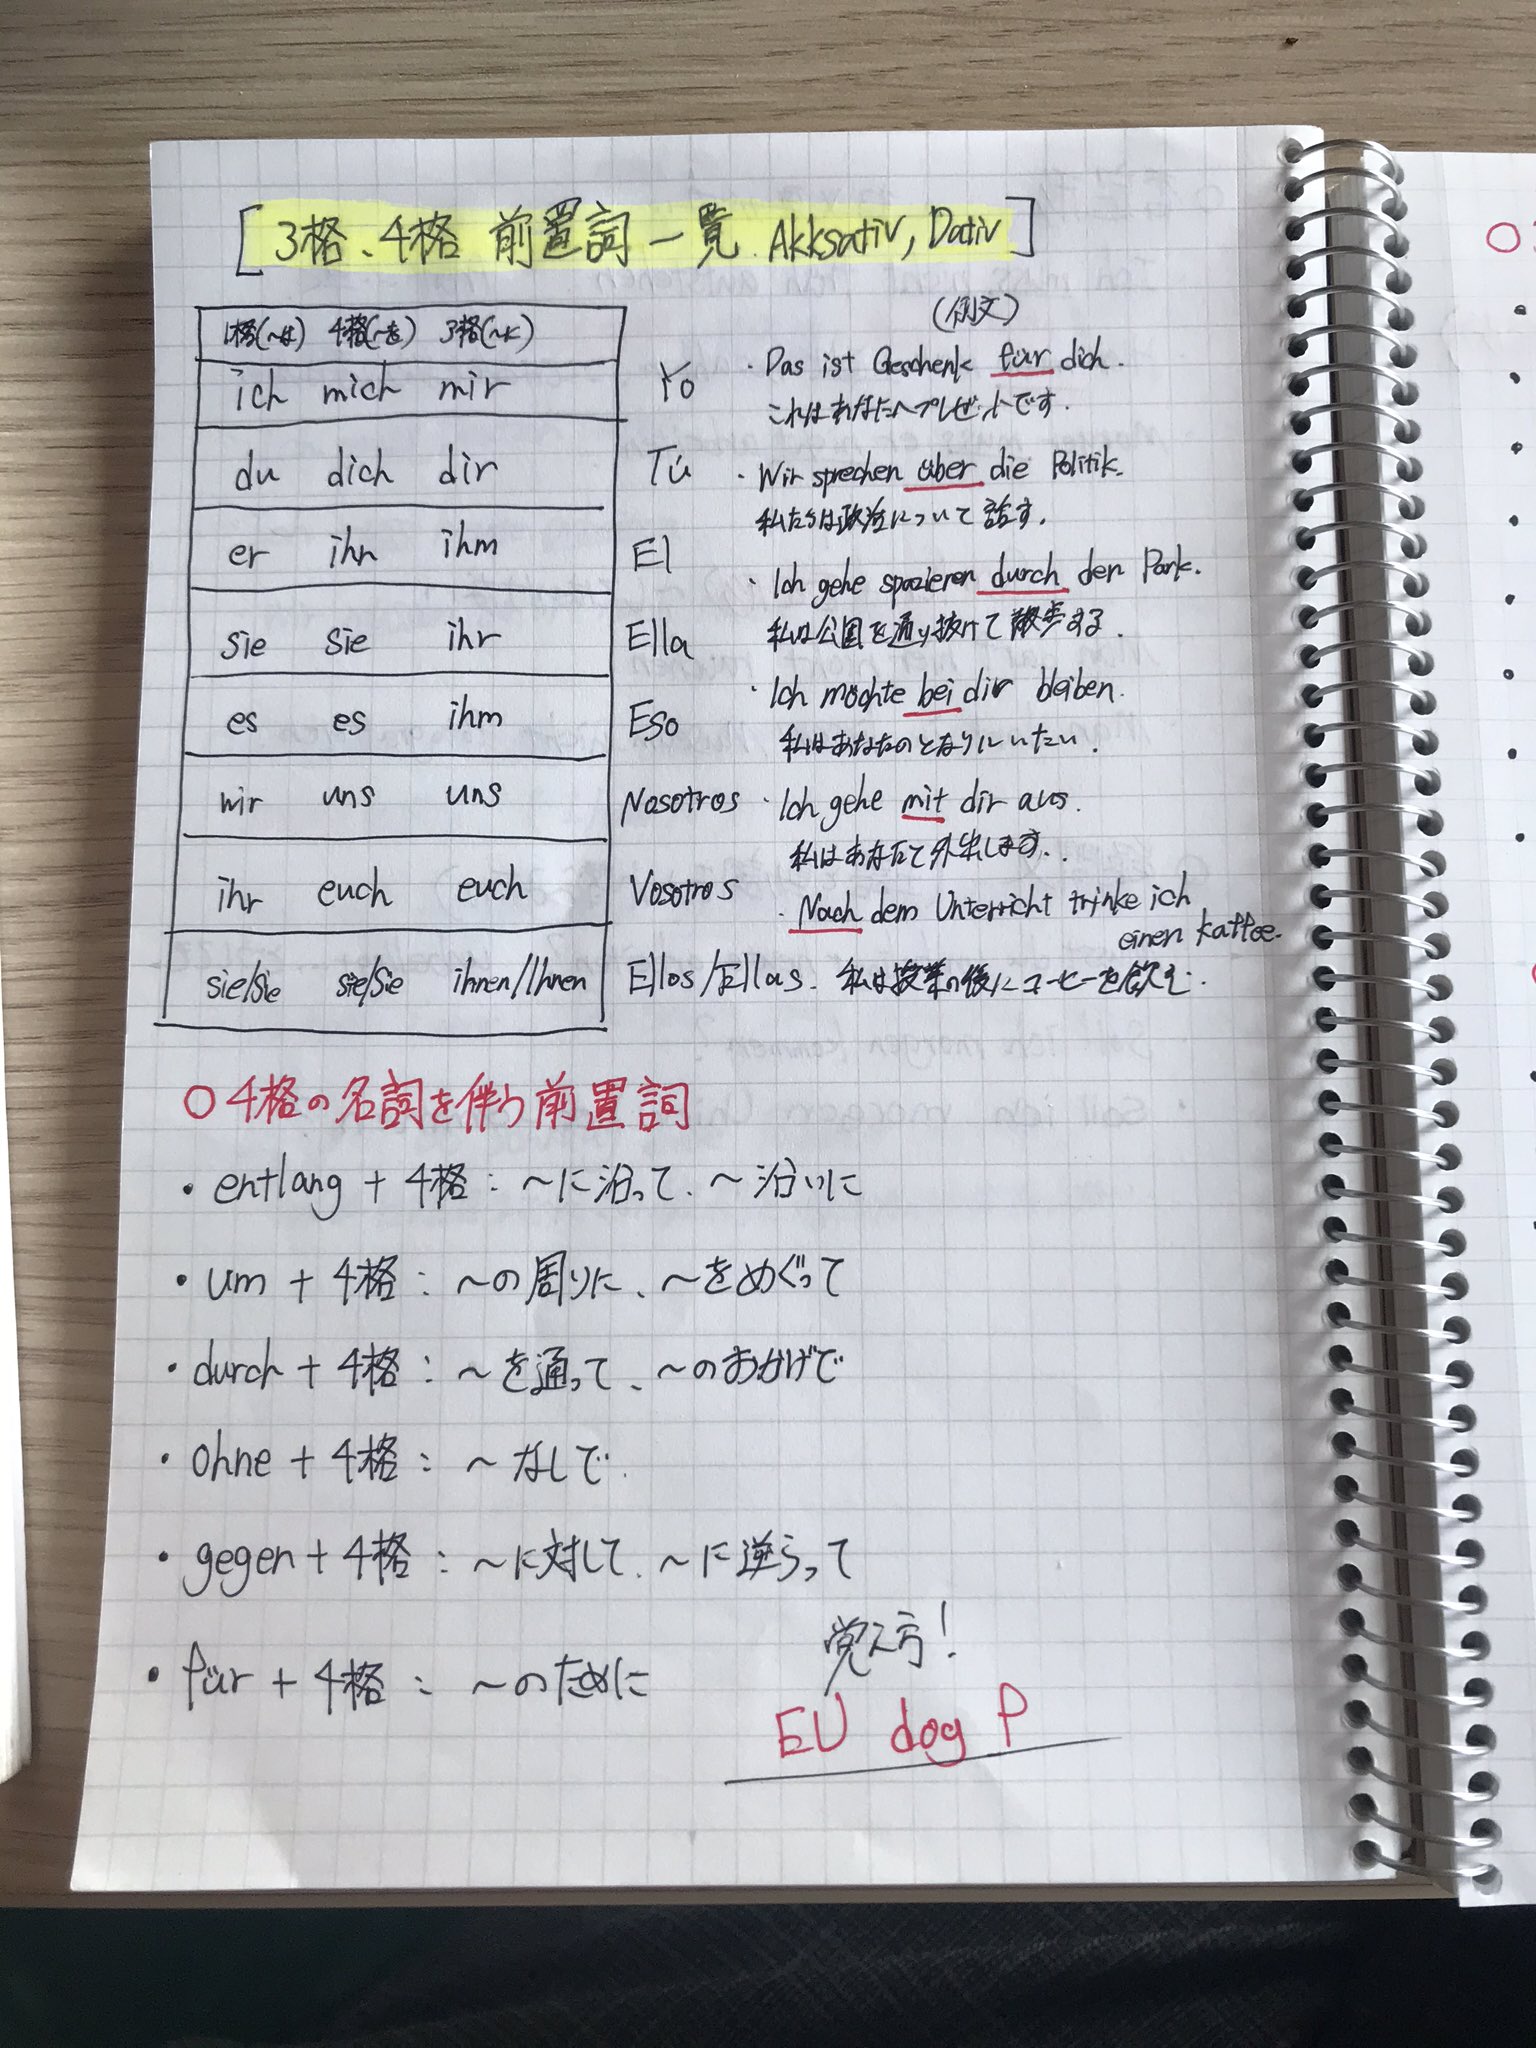 [3格、4格 前置詞一覧. Akksativ, Dativ]
1格(~は) 4格(~を) 3格(~に)
ich mich mir Yo
du dich dir Tú
er ihn ihm El
sie sie ihr Ella
es es ihm Eso
wir uns uns Nosotros
ihr euch euch Vosotros
sie/Sie sie/Sie ihnen/Ihnen Ellos/Ellas.
(例文)
・Das ist Geschenk für dich.
これはあなたへプレゼントです.
・Wir sprechen über die Politik.
私たちは政治について話す.
・Ich gehe spazieren durch den Park.
私は公園を通り抜けて散歩する.
・Ich möchte bei dir bleiben.
私はあなたのとなりにいたい.
・Ich gehe mit dir aus.
私はあなたと外出します.
・Nach dem Unterricht trinke ich
einen kaffee.
私は授業の後にコーヒーを飲む.
○4格の名詞を伴う前置詞
・entlang + 4格: ~に沿って、~沿いに
・um + 4格: ~の周りに、~をめぐって
・durch + 4格: ~を通って、~のおかげで
・ohne + 4格: ~なしで.
・gegen + 4格: ~に対して、~に逆らって
・für + 4格: ~のために
覚え方!
EU dog f